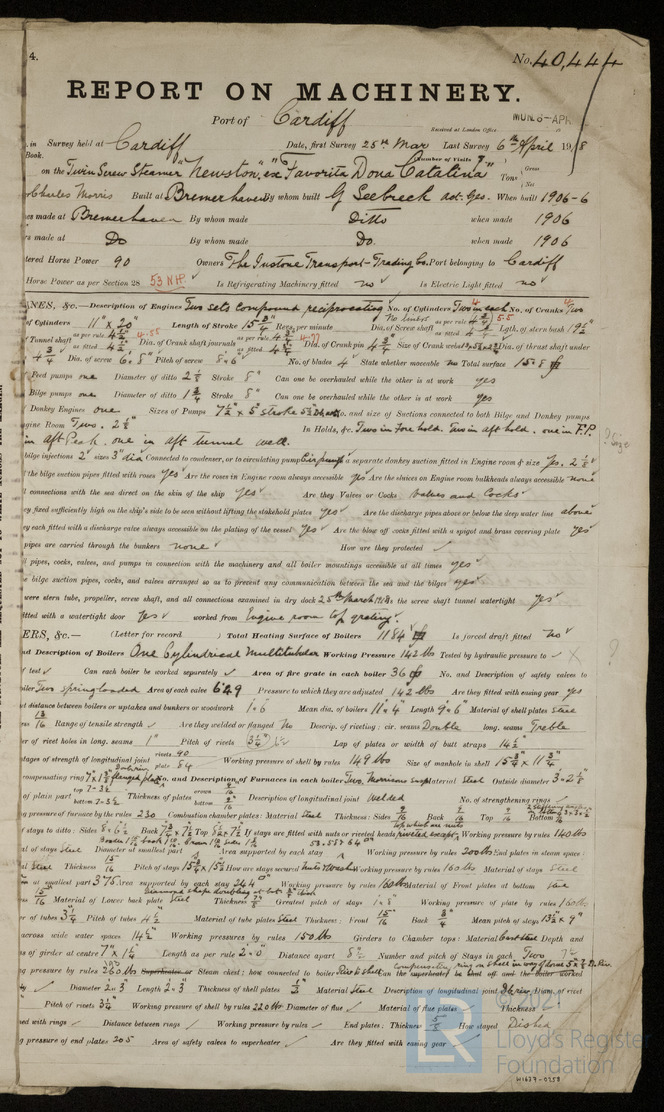 4.
No. 40,444
REPORT ON MACHINERY.
Port of Cardiff
Received at London Office MON. 8-APR
in Survey held at Cardiff Date, first Survey 25th Mar Last Survey 6th April 1918
Book. Number of Visits 7
on the Twin Screw Steamer "Newston" ex "Favorita Dona Catalina" Tons Gross Net
Charles Morris Built at Bremerhaven By whom built G Seebeck act. Ges. When built 1906-6
es made at Bremerhaven By whom made Ditto when made 1906
rs made at Do By whom made Do. when made 1906
tered Horse Power 90 Owners The Instone Transport & Trading Co. Port belonging to Cardiff
Horse Power as per Section 28 53 NH Is Refrigerating Machinery fitted no Is Electric Light fitted no
NES, &c.—Description of Engines Two sets compound reciprocating No. of Cylinders Two in each No. of Cranks Two
of Cylinders 11" x 20" Length of Stroke 15 3/4 Revs. per minute Dia. of Screw shaft as per rule as fitted Lgth. of stern bush 19 1/2"
of Tunnel shaft as per rule as fitted Dia. of Crank shaft journals as per rule as fitted Dia. of Crank pin 4 3/4 Size of Crank webs Dia. of thrust shaft under
4 3/4 Dia. of screw 6'. 8" Pitch of screw 8'. 6" No. of blades 4 State whether moveable no Total surface 15.8
Feed pumps one Diameter of ditto 2 1/8 Stroke 8" Can one be overhauled while the other is at work yes
Bilge pumps one Diameter of ditto 1 3/4 Stroke 8" Can one be overhauled while the other is at work yes
Donkey Engines one Sizes of Pumps 7 1/2 x 5" stroke No. and size of Suctions connected to both Bilge and Donkey pumps
gine Room Two. 2 1/2" In Holds, &c. Two in Fore hold. Two in aft hold. one in F.P.
in aft Peak. one in aft tunnel well.
bilge injections 2 sizes 3" dia Connected to condenser, or to circulating pump Cir pump a separate donkey suction fitted in Engine room & size yes. 2 1/2
the bilge suction pipes fitted with roses yes Are the roses in Engine room always accessible yes Are the sluices on Engine room bulkheads always accessible none
connections with the sea direct on the skin of the ship yes Are they Valves or Cocks valves and Cocks
y fixed sufficiently high on the ship's side to be seen without lifting the stokehold plates yes Are the discharge pipes above or below the deep water line above
y each fitted with a discharge valve always accessible on the plating of the vessel yes Are the blow off cocks fitted with a spigot and brass covering plate yes
pipes are carried through the bunkers none How are they protected
l pipes, cocks, valves, and pumps in connection with the machinery and all boiler mountings accessible at all times yes
e bilge suction pipes, cocks, and valves arranged so as to prevent any communication between the sea and the bilges yes
were stern tube, propeller, screw shaft, and all connections examined in dry dock 25th March 1918 Is the screw shaft tunnel watertight yes
itted with a watertight door Yes worked from Engine room top grating.
ERS, &c.— (Letter for record ) Total Heating Surface of Boilers 1184 Is forced draft fitted no
nd Description of Boilers One Cylindrical Multitubular Working Pressure 142 lbs Tested by hydraulic pressure to
f test Can each boiler be worked separately Area of fire grate in each boiler 36 No. and Description of safety valves to
oiler Two spring loaded Area of each valve 6.49 Pressure to which they are adjusted 142 lbs Are they fitted with easing gear yes
t distance between boilers or uptakes and bunkers or woodwork 1.6 Mean dia. of boilers 11'.4" Length 9'.6" Material of shell plates Steel
13/16 Range of tensile strength Are they welded or flanged No Descrip. of riveting: cir. seams Double long. seams Treble
er of rivet holes in long. seams 1" Pitch of rivets Lap of plates or width of butt straps 14 1/2
ntages of strength of longitudinal joint rivets 90 plate 84 Working pressure of shell by rules 149 lbs Size of manhole in shell 15 3/4 x 11 3/4
ompensating ring flanged plate No. and Description of Furnaces in each boiler Two. Morrisons Material Steel Outside diameter 3'.2 1/8"
of plain part top 7-3 1/2 bottom 7-3 1/2 Thickness of plates crown bottom Description of longitudinal joint welded No. of strengthening rings
g pressure of furnace by the rules 230 Combustion chamber plates: Material Steel Thickness: Sides 9/16 Back 9/16 Top 9/16 Bottom
of stays to ditto: Sides Back Top If stays are fitted with nuts or riveted heads riveted except Working pressure by rules 140 lbs
al of stays Steel Diameter at smallest part Area supported by each stay Working pressure by rules 200 lbs End plates in steam space:
al Steel Thickness 15/16 Pitch of stays How are stays secured nuts & washers Working pressure by rules 160 lbs Material of stays Steel
er at smallest part 3.75 Area supported by each stay 244 Working pressure by rules 160 lbs Material of Front plates at bottom Steel
15/16 Material of Lower back plate Steel Thickness 7/8 Greatest pitch of stays Working pressure of plate by rules 160 lbs
er of tubes 3 1/4 Pitch of tubes 4 1/2 Material of tube plates Steel Thickness: Front 15/16 Back 3/4 Mean pitch of stays 13 1/2 x 9"
across wide water spaces 14 1/2 Working pressures by rules 150 lbs Girders to Chamber tops: Material Cast Steel Depth and
ss of girder at centre 7" x 1 1/4 Length as per rule 2'.0" Distance apart 8 1/2 Number and pitch of Stays in each Two
g pressure by rules 260 lbs Superheater or Steam chest; how connected to boiler Can the superheater be shut off and the boiler worked
ly Diameter 2'.3" Length 2'.3 Thickness of shell plates 1/2 Material Steel Description of longitudinal joint Diam. of rivet
Pitch of rivets 3 1/4 Working pressure of shell by rules 220 lbs Diameter of flue Material of flue plates Thickness
ed with rings Distance between rings Working pressure by rules End plates: Thickness 5/8 How stayed Dished
g pressure of end plates 205 Area of safety valves to superheater Are they fitted with easing gear
© 2021
LR
Lloyd's Register
Foundation
W1637-0258